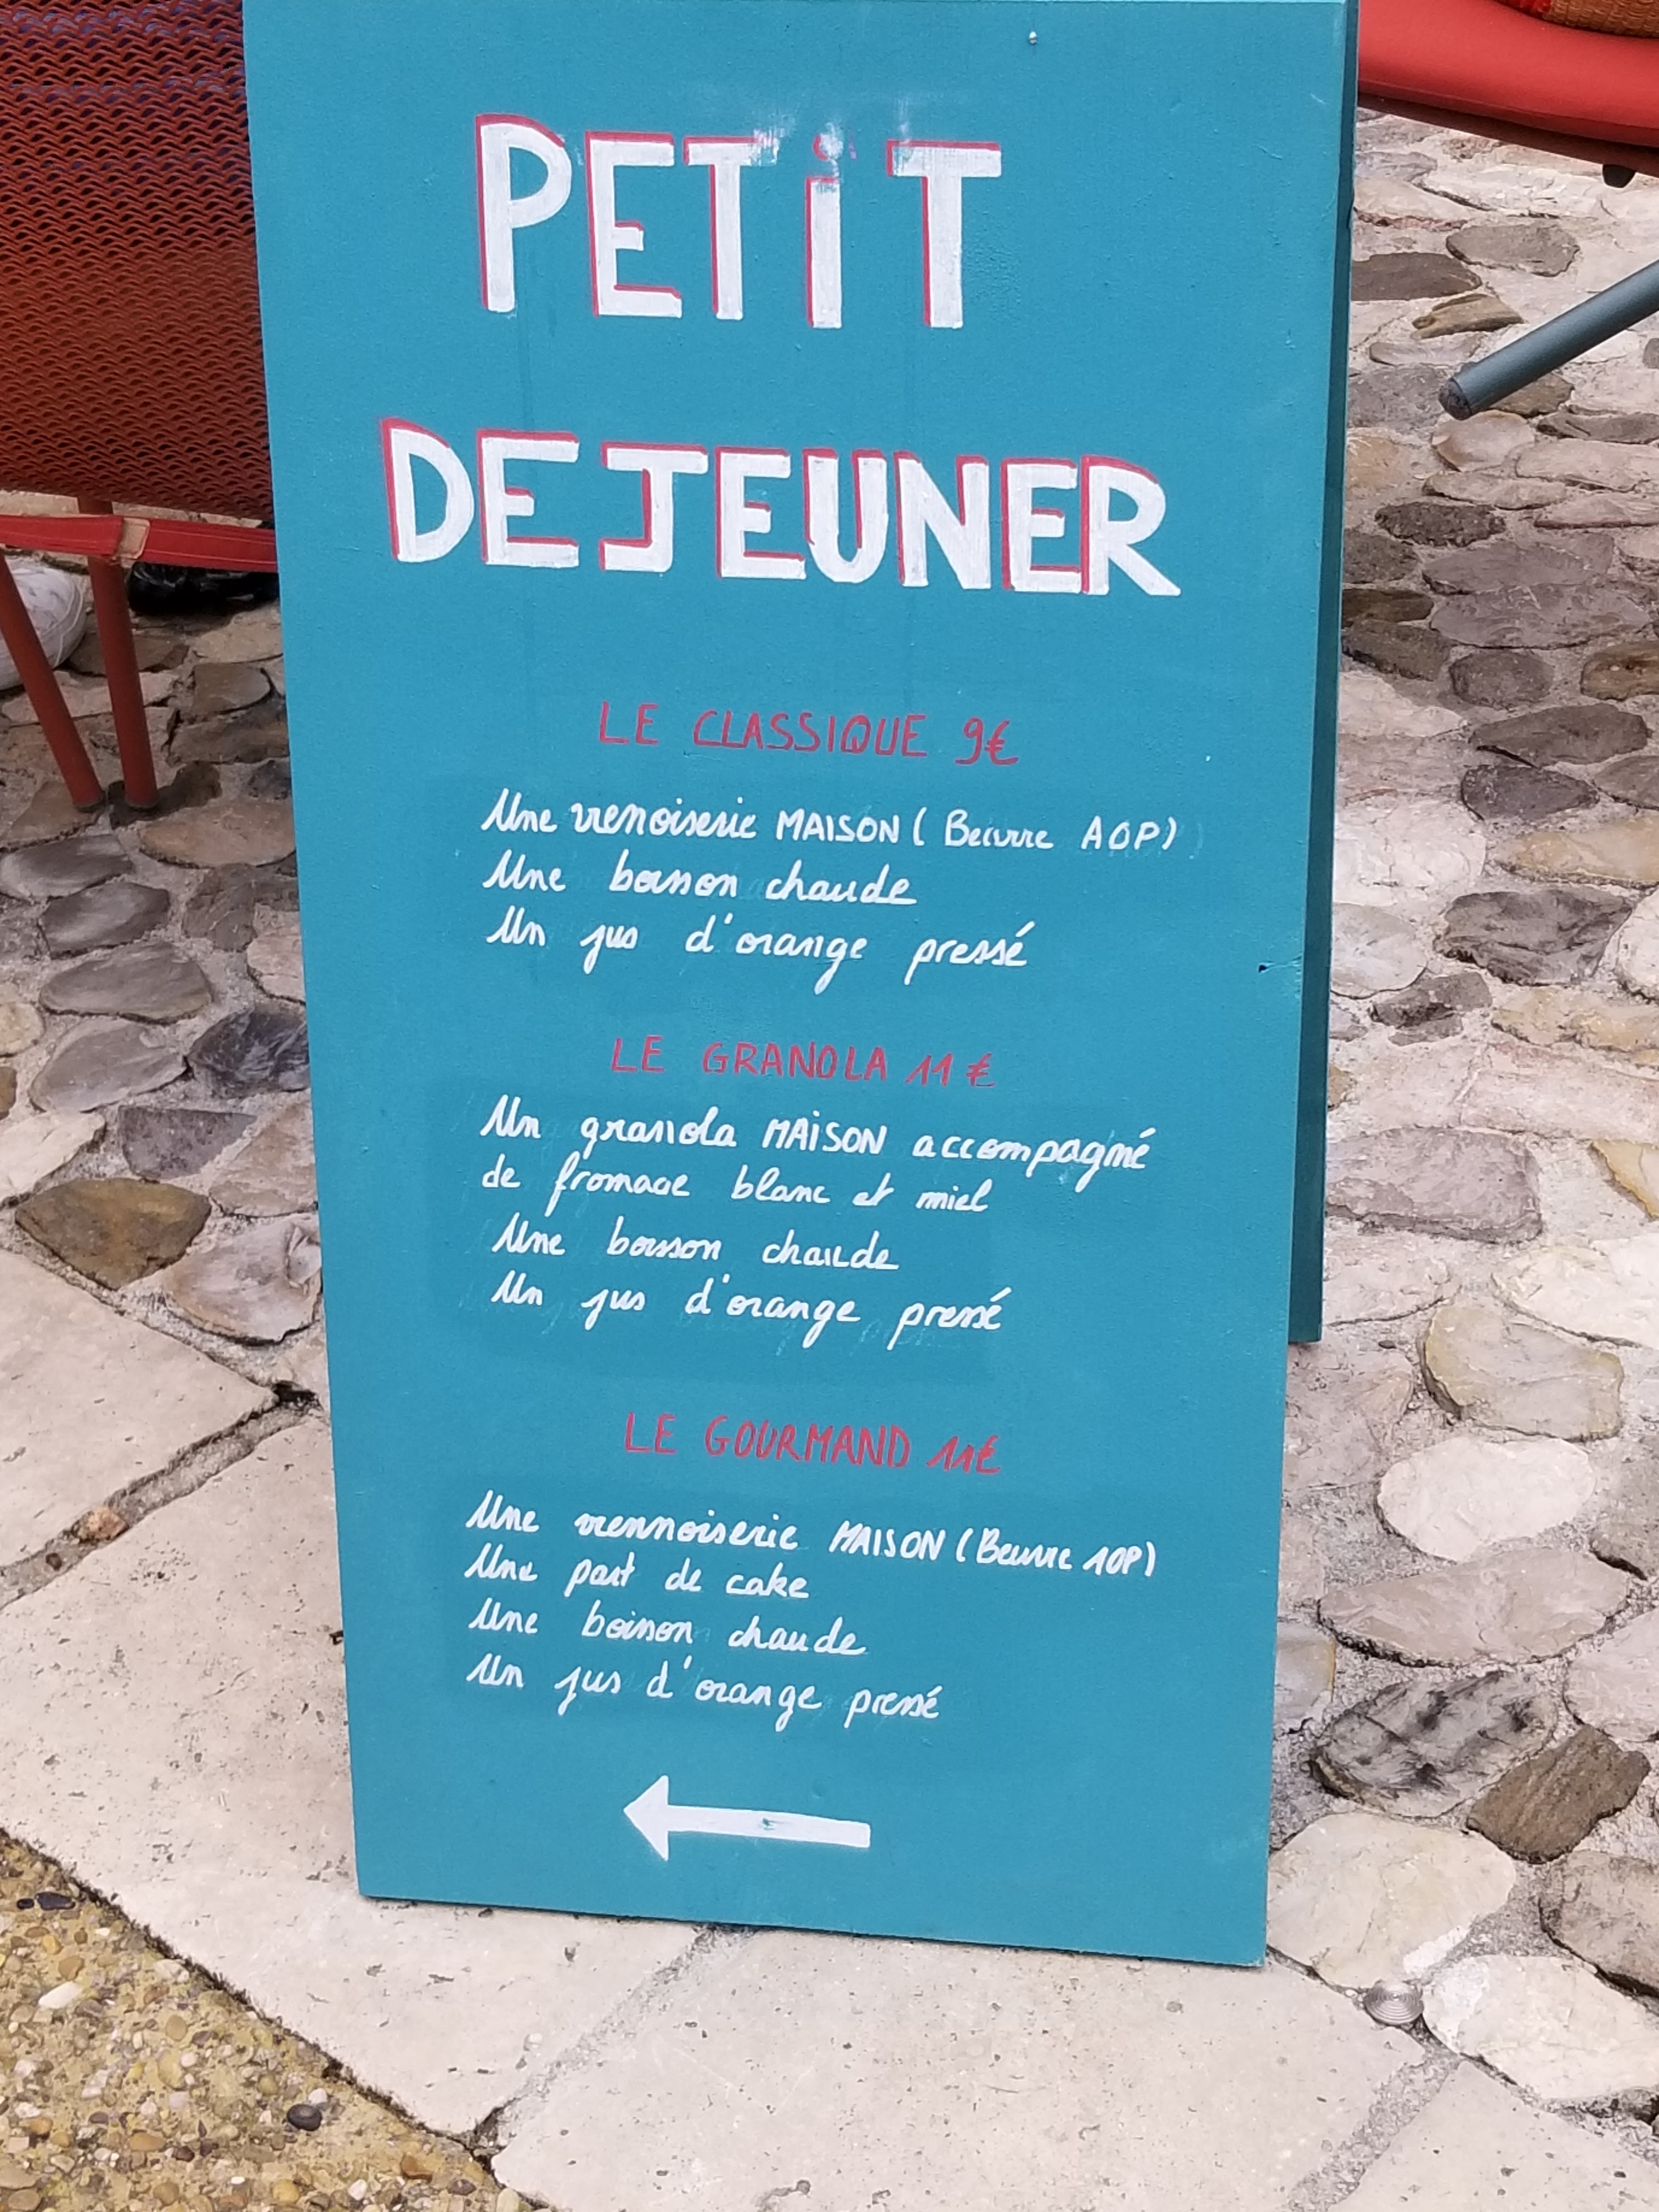 PETiT
DEJEUNER
LE CLASSIQUE 9€
Une vienoiserie MAISON ( Beurre AOP)
Une boisson chaude
Un jus d'orange pressé
LE GRANOLA 11 €
Un granola MAiSON accompagné
de fromage blanc et miel
Une boisson chaude
Un jus d'orange pressé
LE GOURMAND 11€
Une viennoiserie MAISON (Beurre AOP)
Une part de cake
Une boisson chaude
Un jus d'orange pressé